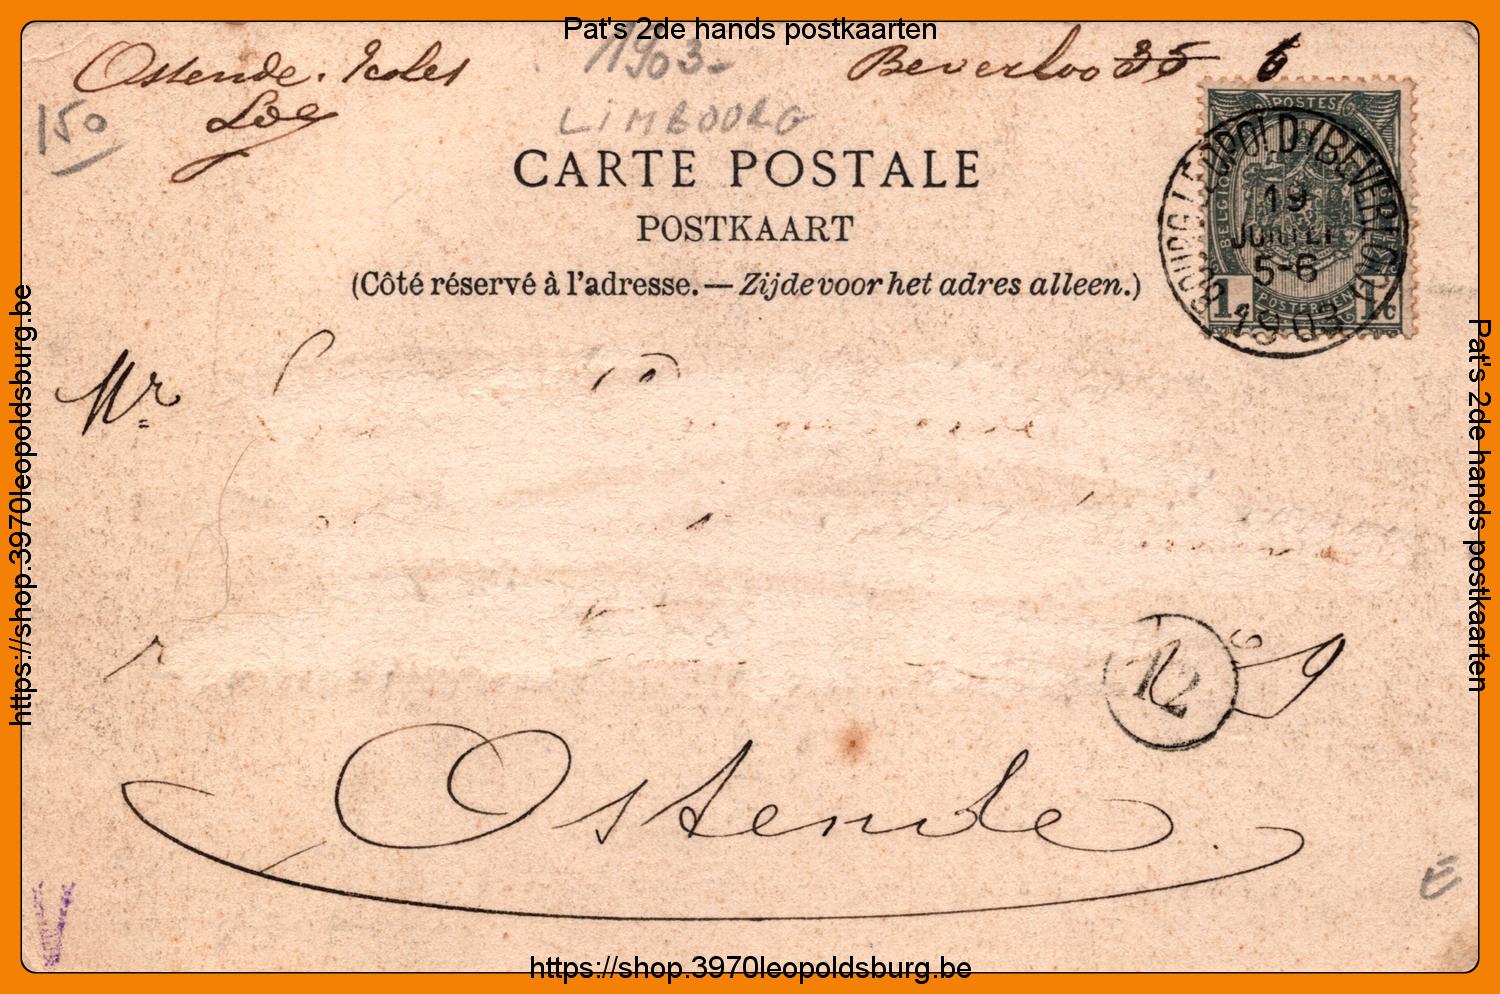 Pat's 2de hands postkaarten
Ostende.
1903-
Beverloo 35 6
150
LIMBOURG
CARTE POSTALE
POSTKAART
(Côté réservé à l'adresse. — Zijde voor het adres alleen.)
POSTES
BELGIQUE
1 1c
POSTERIJEN
BOURG LEOPOLD (BEVERLOO)
19
JUILLET
5-6
1903
Mr
12
Ostende
E
https://shop.3970leopoldsburg.be
Pat's 2de hands postkaarten
https://shop.3970leopoldsburg.be